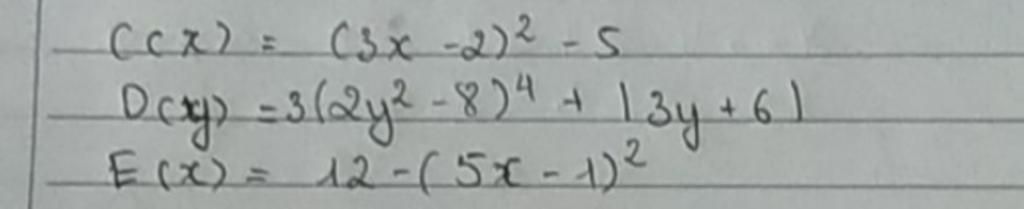 C(x) = (3x - 2)² - 5
D(y) = 3(2y² - 8)⁴ + |3y + 6|
E(x) = 12 - (5x - 1)²